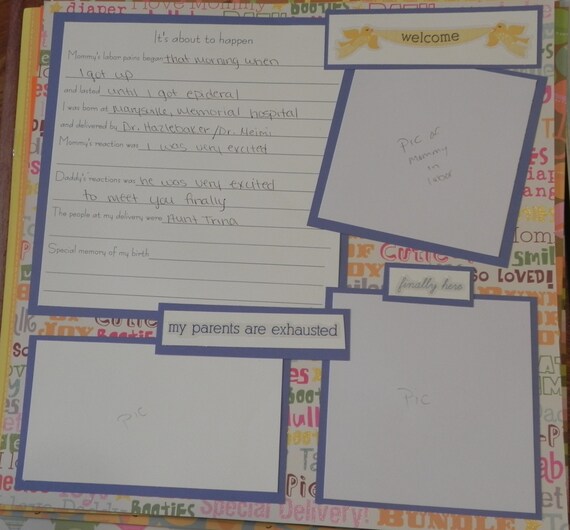 It's about to happen
Mommy's labor pains began that morning when
I got up
and lasted until I got epideral
I was born at Marysville, Memorial hospital
and delivered by Dr. Hazlebaker/Dr.
Mommy's reaction was I was very excited
Daddy's reactions was he was very excited
to meet you finally
The people at my delivery were Aunt Trina
Special memory of my birth
welcome
Pic of
Mommy
in
labor
finally here
my parents are exhausted
pic
Pic
I love Mommy
diaper
SO LOVED!
Cutie
BOOTIES
Special Delivery!